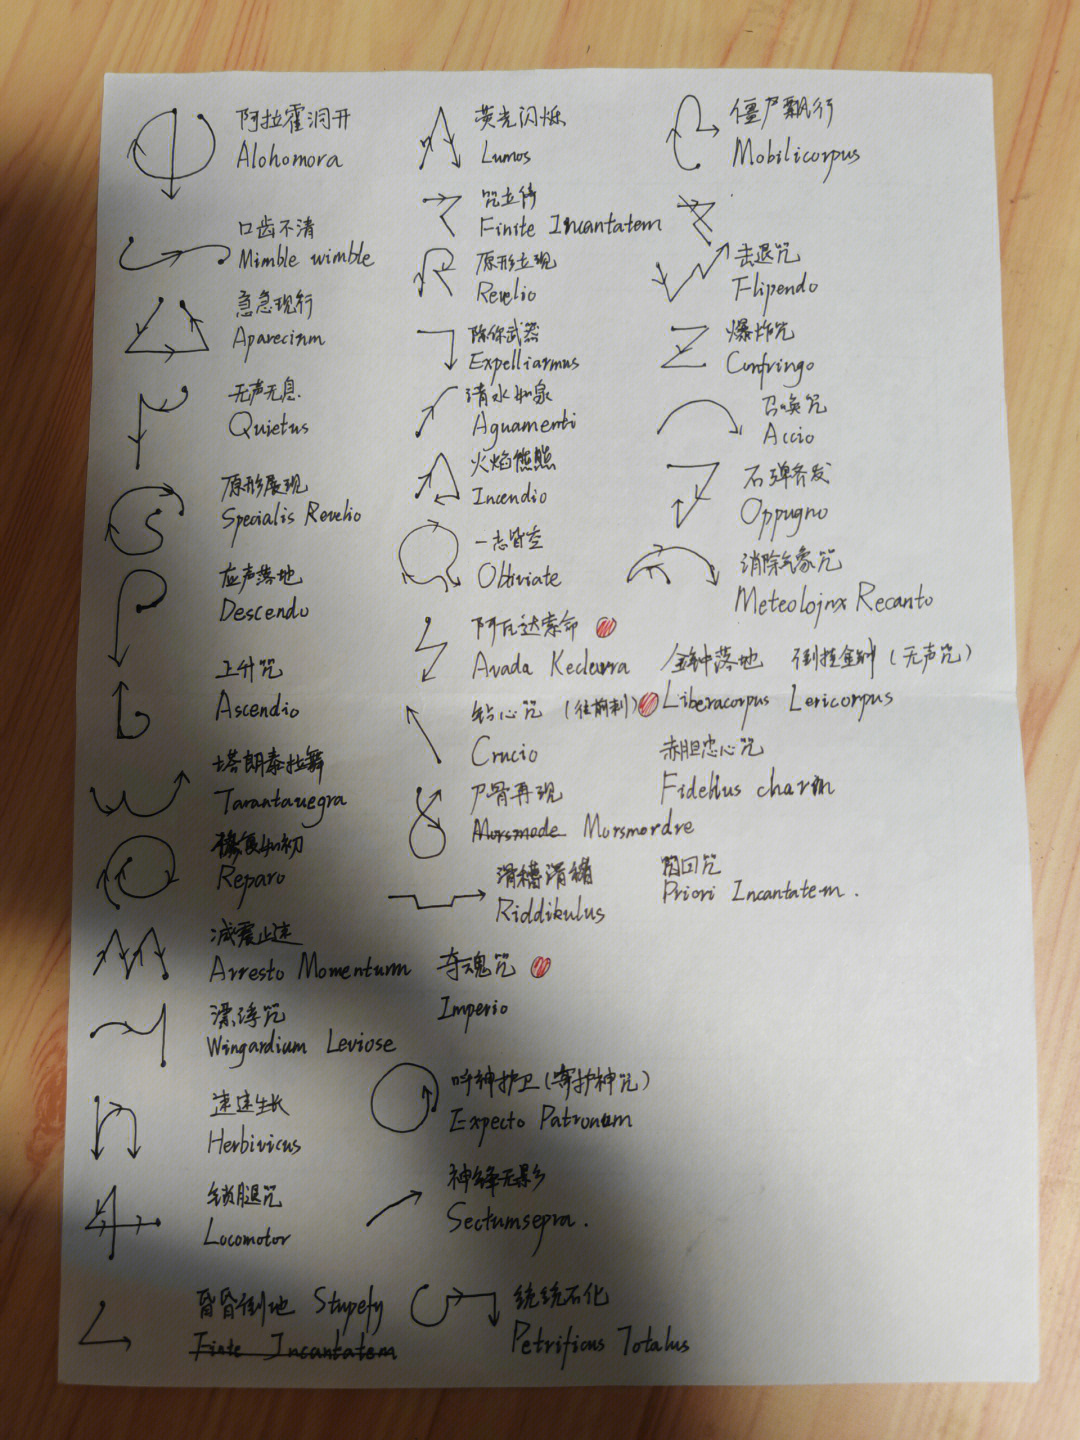 阿拉霍洞开
Alohomora
口齿不清
Mimble wimble
急急现行
Aparecium
无声无息
Quietus
原形展现
Specialis Revelio
应声落地
Descendo
上升咒
Ascendio
塔朗泰拉舞
Tarantauegra
修复如初
Reparo
减震止速
Arresto Momentum
漂浮咒
Wingardium Leviose
速速生长
Herbivicus
锁腿咒
Locomotor
昏昏倒地 Stupefy
Finte Incantatem
荧光闪烁
Lumos
咒立停
Finite Incantatem
原形立现
Revelio
除你武器
Expelliarmus
清水如泉
Aguamenti
火焰熊熊
Incendio
一忘皆空
Obliviate
阿瓦达索命
Avada Kedavra
钻心咒（往前刺）
Crucio
尸骨再现
Morsmode Morsmordre
滑稽滑稽
Riddikulus
夺魂咒
Imperio
呼神护卫（守护神咒）
Expecto Patronum
神锋无影
Sectumsepra.
统统石化
Petrificus Totalus
僵尸飘行
Mobilicorpus
击退咒
Flipendo
爆炸咒
Confringo
召唤咒
Accio
万弹齐发
Oppugno
消除气象咒
Meteolojnx Recanto
金钟落地 倒挂金钟（无声咒）
Liberacorpus Levicorpus
赤胆忠心咒
Fidelius charm
闪回咒
Priori Incantatem.